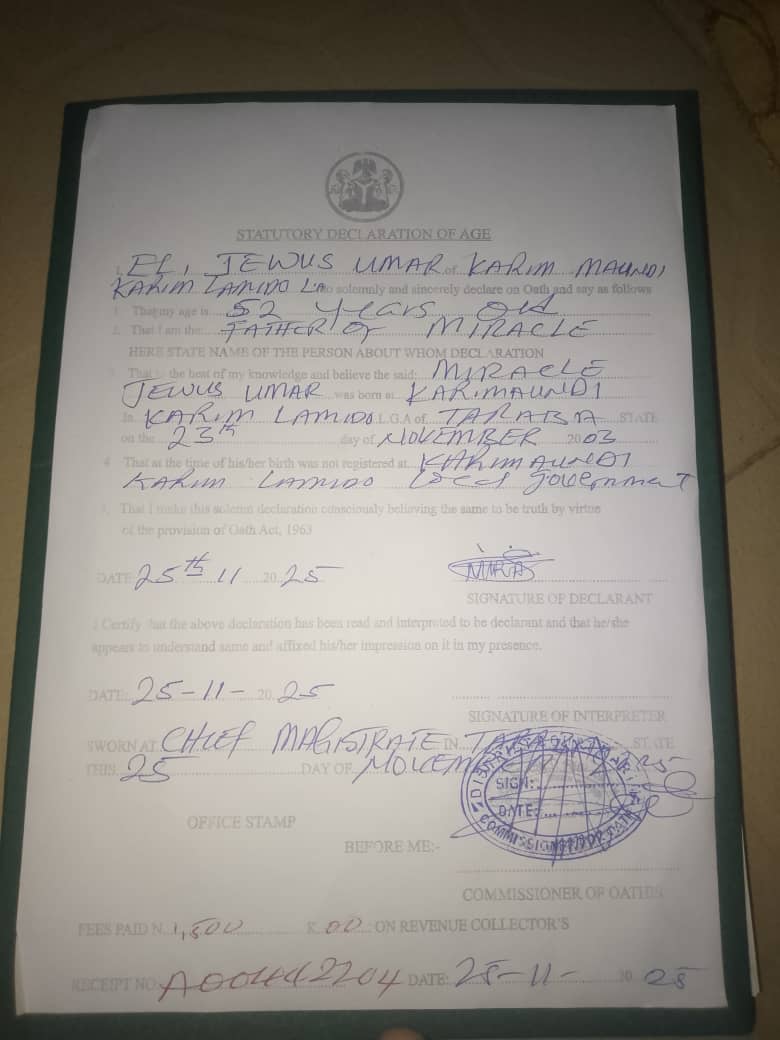 STATUTORY DECLARATION OF AGE
I, EL, JEWUS UMAR of KARIM MAUNDI
KARIM LAMIDO LA do solemnly and sincerely declare on Oath and say as follows
1. That my age is 52 years old
2. That I am the FATHER OF MIRACLE
HERE STATE NAME OF THE PERSON ABOUT WHOM DECLARATION
3. That to the best of my knowledge and believe the said: MIRACLE
JEWUS UMAR was born at KARIMAUNDI
In KARIM LAMIDO L.G.A of TARABA STATE
on the 23th day of NOVEMBER 2003
4. That at the time of his/her birth was not registered at KARIMAUNDI
KARIM LAMIDO local government
5. That I make this solemn declaration consciously believing the same to be truth by virtue
of the provision of Oath Act, 1963
DATE 25th 11 20 25
SIGNATURE OF DECLARANT
I Certify that the above declaration has been read and interpreted to be declarant and that he/she
appears to understand same and affixed his/her impression on it in my presence.
DATE: 25-11- 20 25
SIGNATURE OF INTERPRETER
SWORN AT CHIEF MAGISTRATE IN STATE
THIS 25 DAY OF
SIGN:
DATE:
OFFICE STAMP
BEFORE ME:-
COMMISSIONER OF OATHS
FEES PAID N 1,500 K 00 ON REVENUE COLLECTOR'S
RECEIPT NO: DATE: 25-11- 20 25